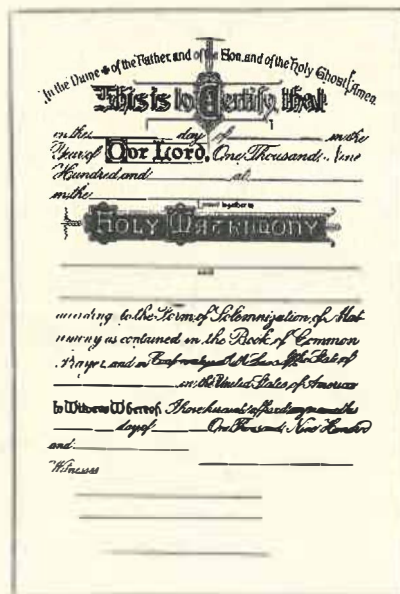 In the Name of the Father, and of the Son, and of the Holy Ghost, Amen.
This is to Certify that
on the day of in the
Year of Our Lord, One Thousand, Nine
Hundred, and at
in the
joined together in
HOLY MATRIMONY
and
according to the Form of Solemnization of Mat
rimony as contained in the Book of Common
Prayer, and in Conformity with the Laws of the State of
in the United States of America
In Witness Whereof, I have hereunto affixed my name this
day of One Thousand Nine Hundred
and
Witnesses